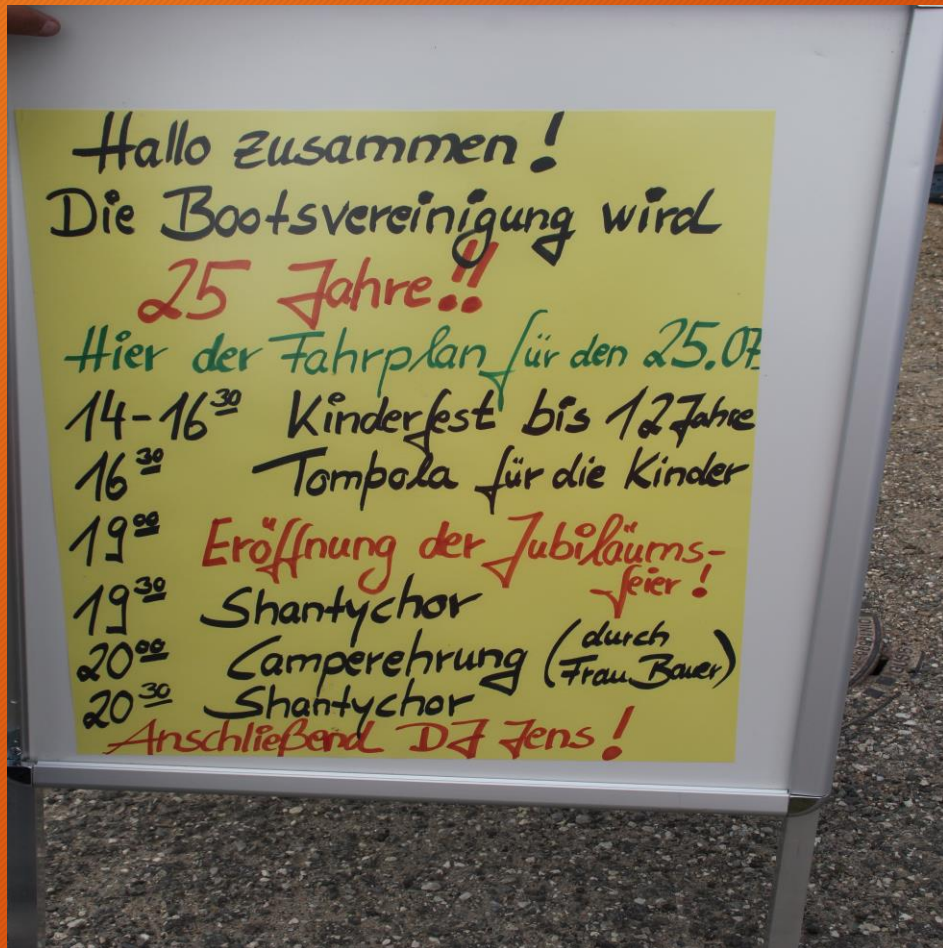 Hallo zusammen!
Die Bootsvereinigung wird
25 Jahre!!
Hier der Fahrplan für den 25.07
14-16 30 Kinderfest bis 12 Jahre
16 30 Tompola für die Kinder
19 00 Eröffnung der Jubiläums-
feier!
19 30 Shantychor
20 00 Camperehrung (durch
Frau Bauer)
20 30 Shantychor
Anschließend DJ Jens!